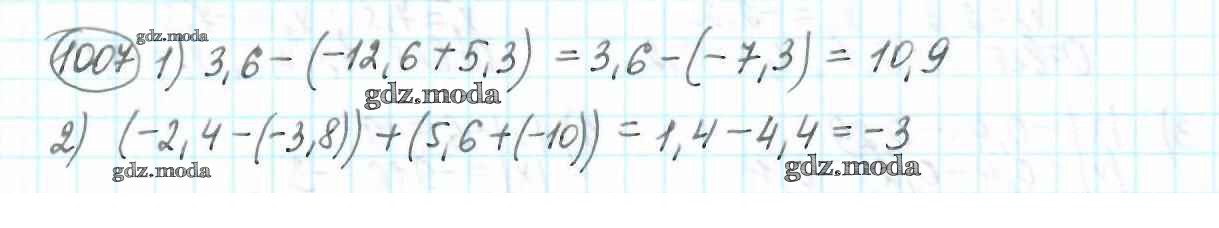 1007 gdz.moda 1) 3,6 - (-12,6 + 5,3) = 3,6 - (-7,3) = 10,9
gdz.moda
2) (-2,4 - (-3,8)) + (5,6 + (-10)) = 1,4 - 4,4 = -3
gdz.moda gdz.moda